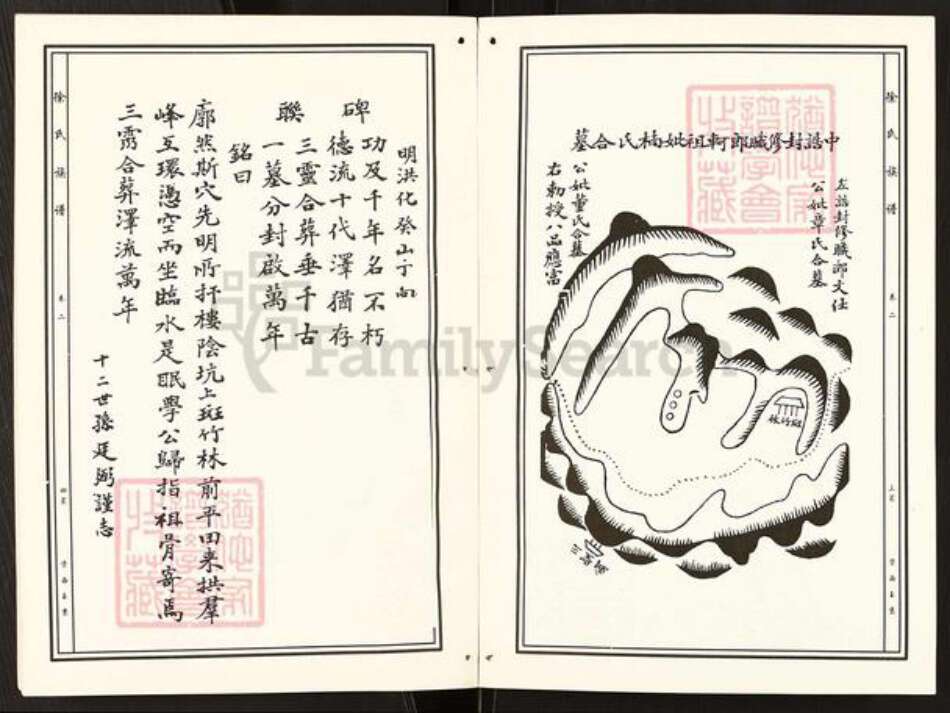 徐氏族譜
卷二
中誥封修職郎軒祖妣楠氏合墓
左誥封修職郎文仕
公妣章氏合墓
公妣董氏合墓
右勅授八品應富
斑竹林
徐氏族譜
卷二
明洪化癸山丁向
碑
聯
功及千年名不朽
德流十代澤猶存
三靈合葬垂千古
一墓分封啟萬年
銘曰
廓然斯穴先明所扞樓陰坑上斑竹林前平田来拱羣
峰互環憑空而坐臨水是眠學公歸指祖骨寄焉
三霛合葬澤流萬年
十二世孫廷弼謹志
FamilySearch